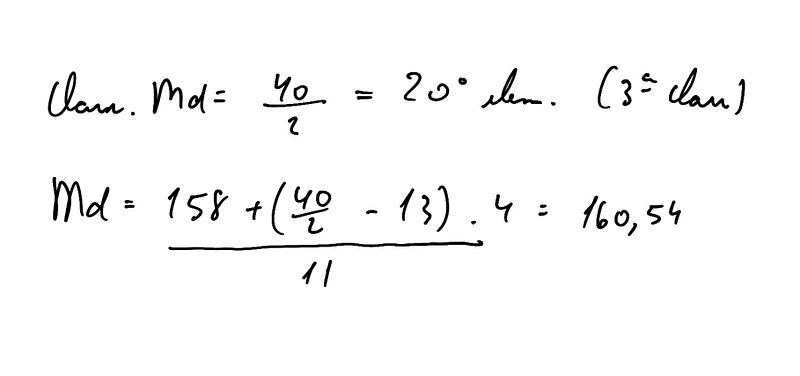 Class. Md = 40/2 = 20° elem. (3ª class)
Md = 158 + (40/2 - 13) . 4 = 160,54
11